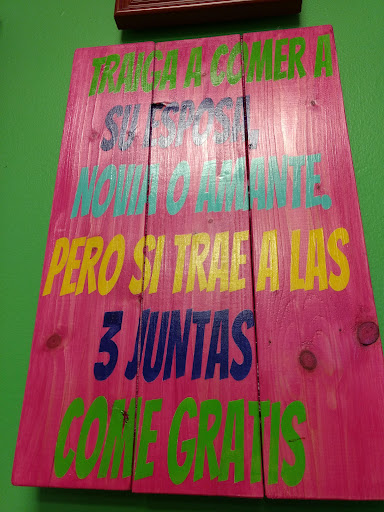 TRAIGA A COMER A
SU ESPOSA,
NOVIA O AMANTE.
PERO SI TRAE A LAS
3 JUNTAS
COME GRATIS